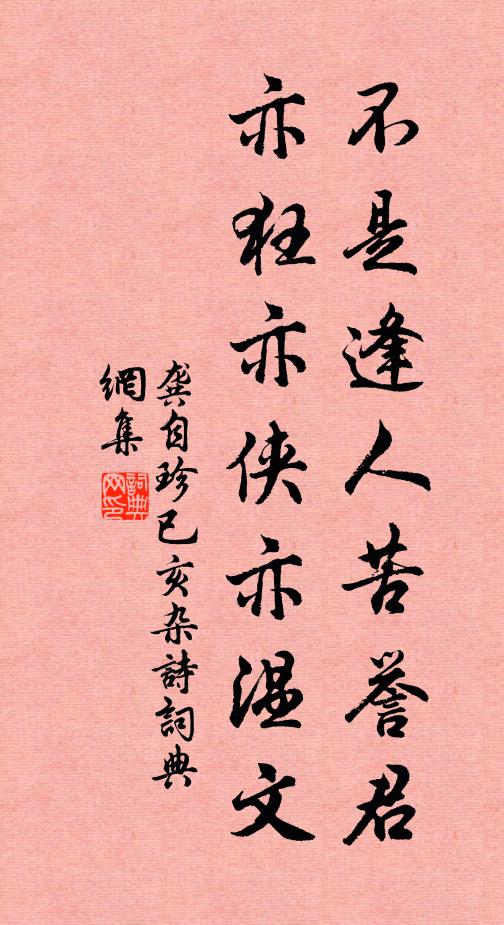 不是逢人苦誉君
亦狂亦侠亦温文
龚自珍己亥杂詩詞典
網集
詞典
网印